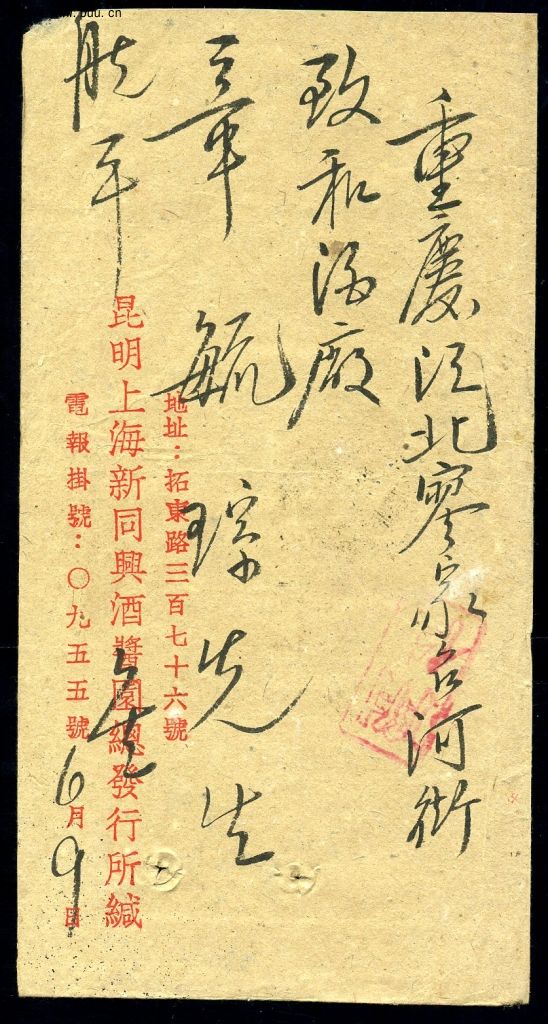 重慶江北廖家台河街
致和酒廠
章毓琮先生
航平
地址：拓東路三百七十六號
昆明上海新同興酒醬園總發行所緘
電報掛號：〇九五五號
6月9日